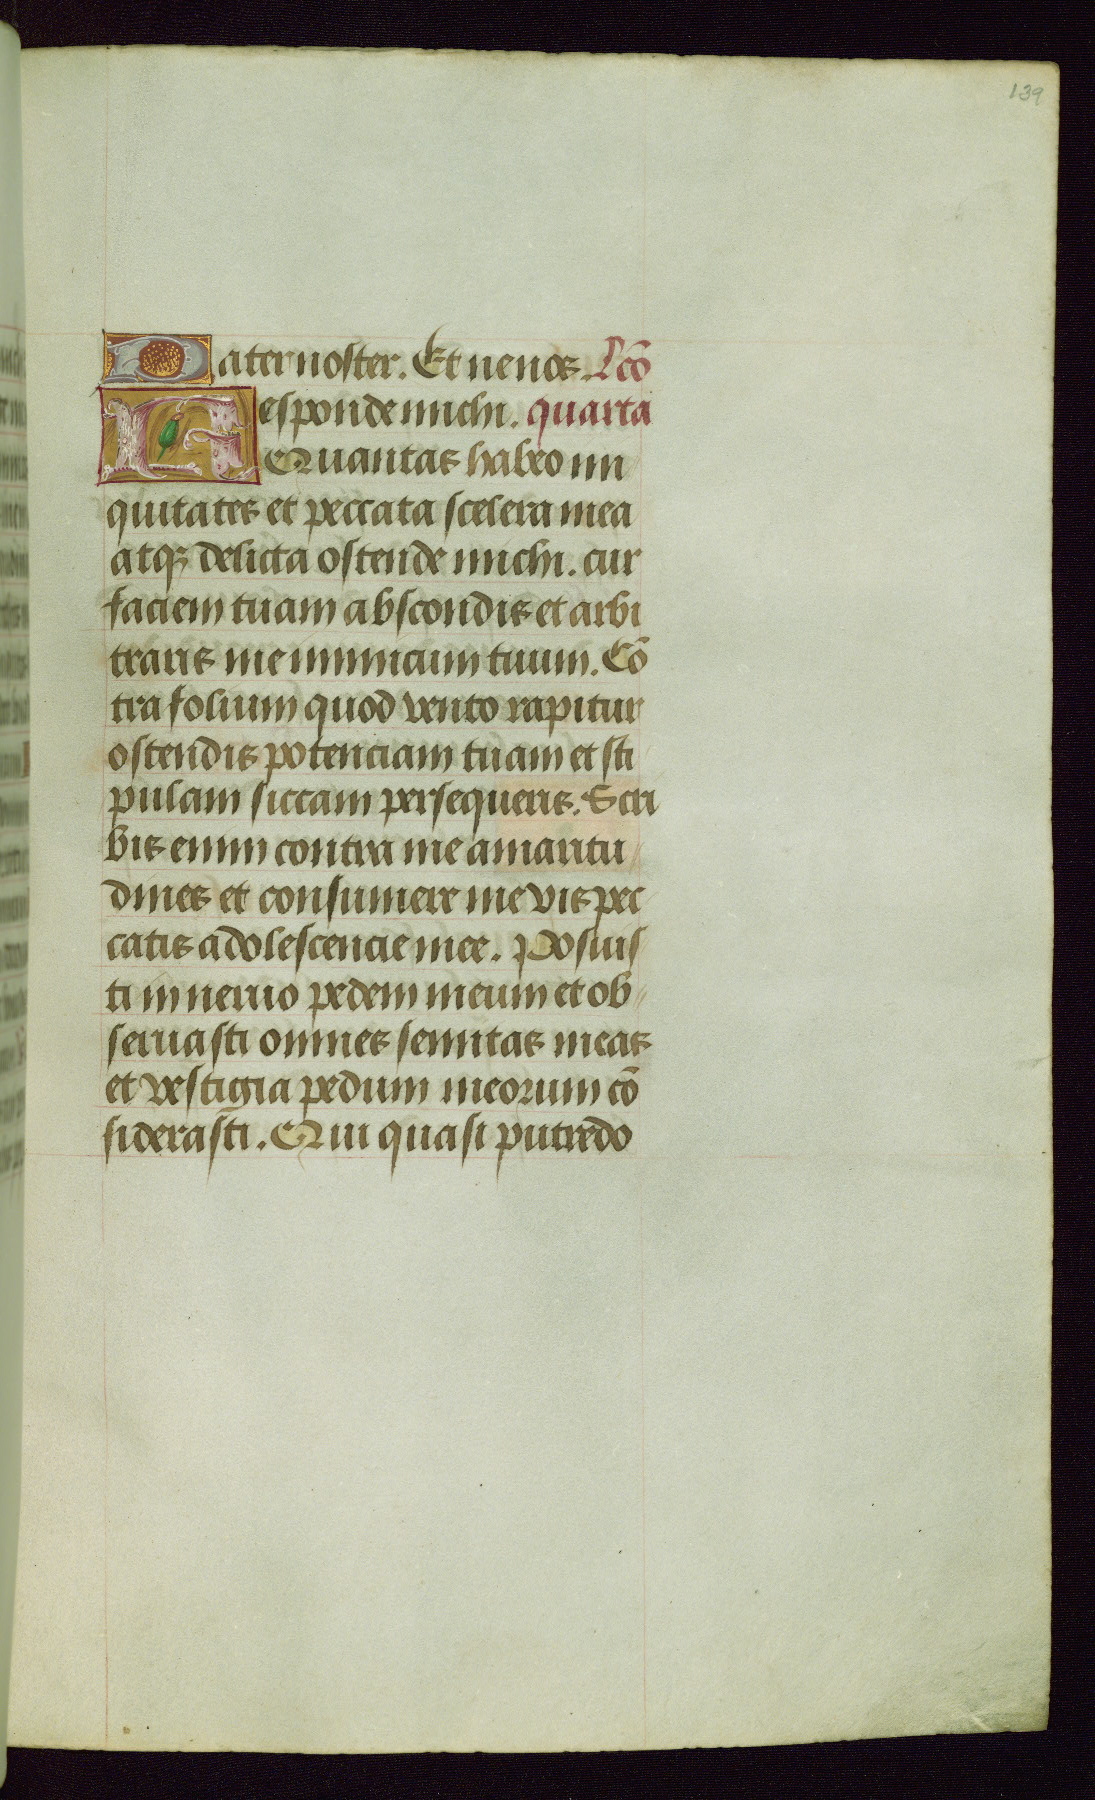 139
Pater noster. Et ne nos. Lc̄o
Responde michi. quarta
Quantas habeo ini
quitates et peccata scelera mea
atqꝫ delicta ostende michi. cur
faciem tuam abscondis et arbi
traris me inimicum tuum. Cō
tra folium quod vento rapitur
ostendis potenciam tuam et sti
pulam siccam persequeris. Scri
bis enim contra me amaritu
dines et consumere me vis pec
catis adolescencie mee. Posuis
ti in neruo pedem meum et ob
seruasti omnes semitas meas
et vestigia pedum meorum cō
siderasti. Qui quasi putredo